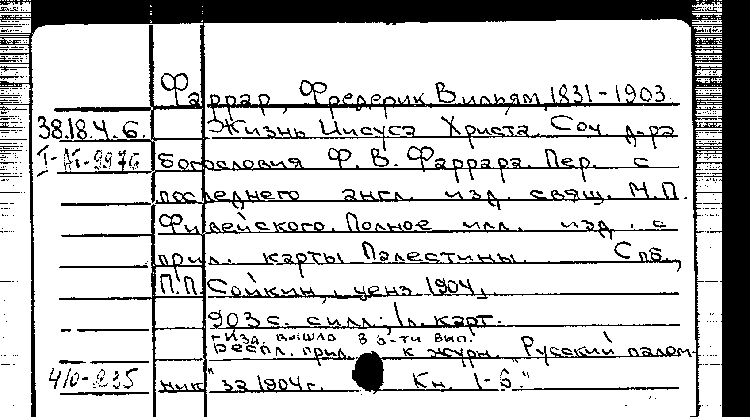 Фаррар, Фредерик Вильям, 1831-1903.
38.18.4.6. Жизнь Иисуса Христа. Соч. д-ра
богословия Ф. В. Фаррара. Пер. с
последнего англ. изд. свящ. М.П.
Фивейского. Полное илл. изд. с
прил. карты Палестины. Спб.,
П.П. Сойкин, ценз. 1904.
903 с. с илл.; 1 л. карт.
Изд. вышло в 6-ти вып.
Беспл. прил. к журн. "Русский палом-
410-235 ник" за 1904 г. Кн. 1-6."